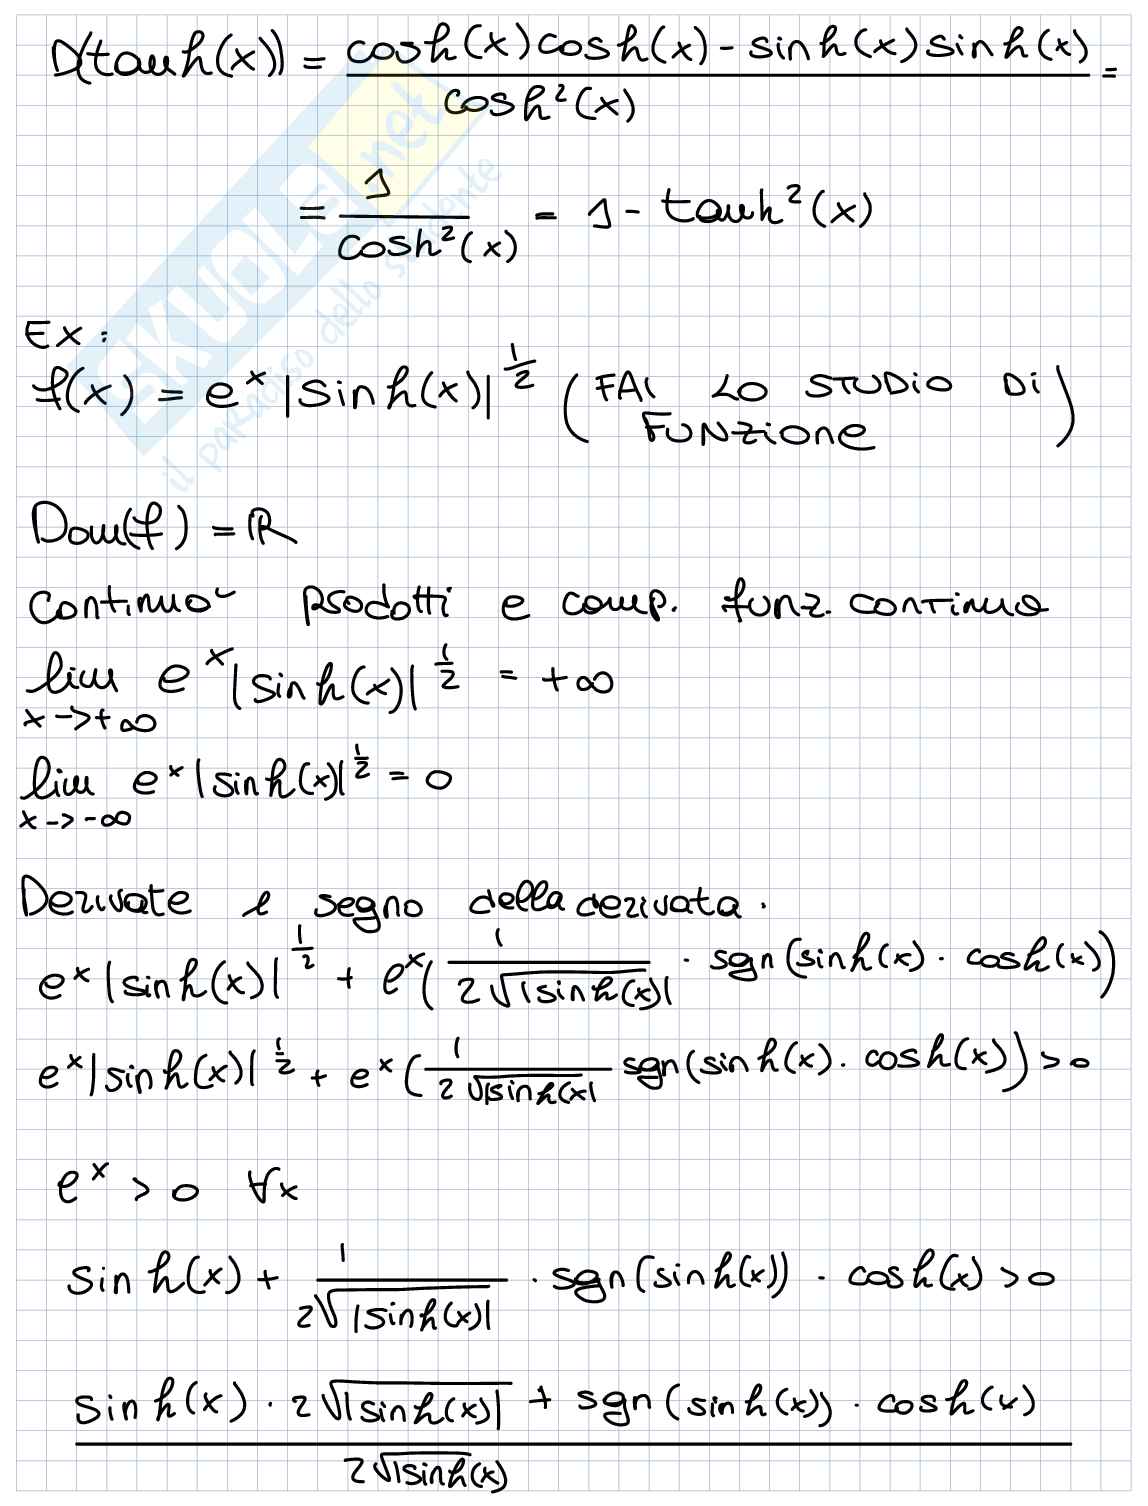 D(tanh(x)) = cosh(x)cosh(x) - sinh(x)sinh(x) / cosh²(x) =
= 1 / cosh²(x) = 1 - tanh²(x)
Ex:
f(x) = e^x |sinh(x)|^½ (FAI LO STUDIO DI
FUNZIONE)
Dom(f) = ℝ
continuo prodotti e comp. funz. continue
lim e^x |sinh(x)|^½ = +∞
x->+∞
lim e^x |sinh(x)|^½ = 0
x->-∞
Derivate e segno della derivata.
e^x |sinh(x)|^½ + e^x ( 1 / 2√|sinh(x)| · sgn(sinh(x) · cosh(x))
e^x |sinh(x)|^½ + e^x ( 1 / 2√|sinh(x)| sgn(sinh(x) · cosh(x)) > 0
e^x > 0 ∀x
sinh(x) + 1 / 2√|sinh(x)| · sgn(sinh(x)) · cosh(x) > 0
sinh(x) · 2√|sinh(x)| + sgn(sinh(x)) · cosh(x)
2√|sinh(x)
SKUOLA.net
il paradiso dello studente